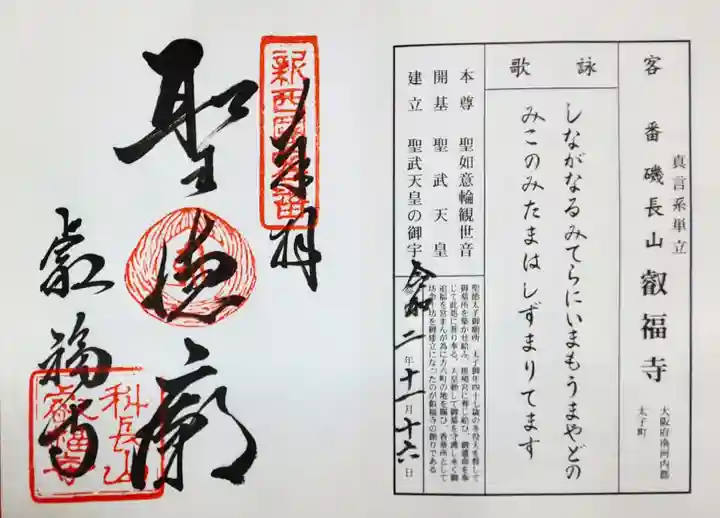 客番 磯長山 叡福寺
真言系単立
大阪府南河内郡
太子町
詠歌
しながなるみてらにいまもうまやどの
みこのみたまはしずまりてます
本尊 聖如意輪観世音
開基 聖武天皇
建立 聖武天皇の御宇
令和二年十一月十六日
奉拝
聖徳廟
叡福寺
新西國客番
科長山
叡福寺